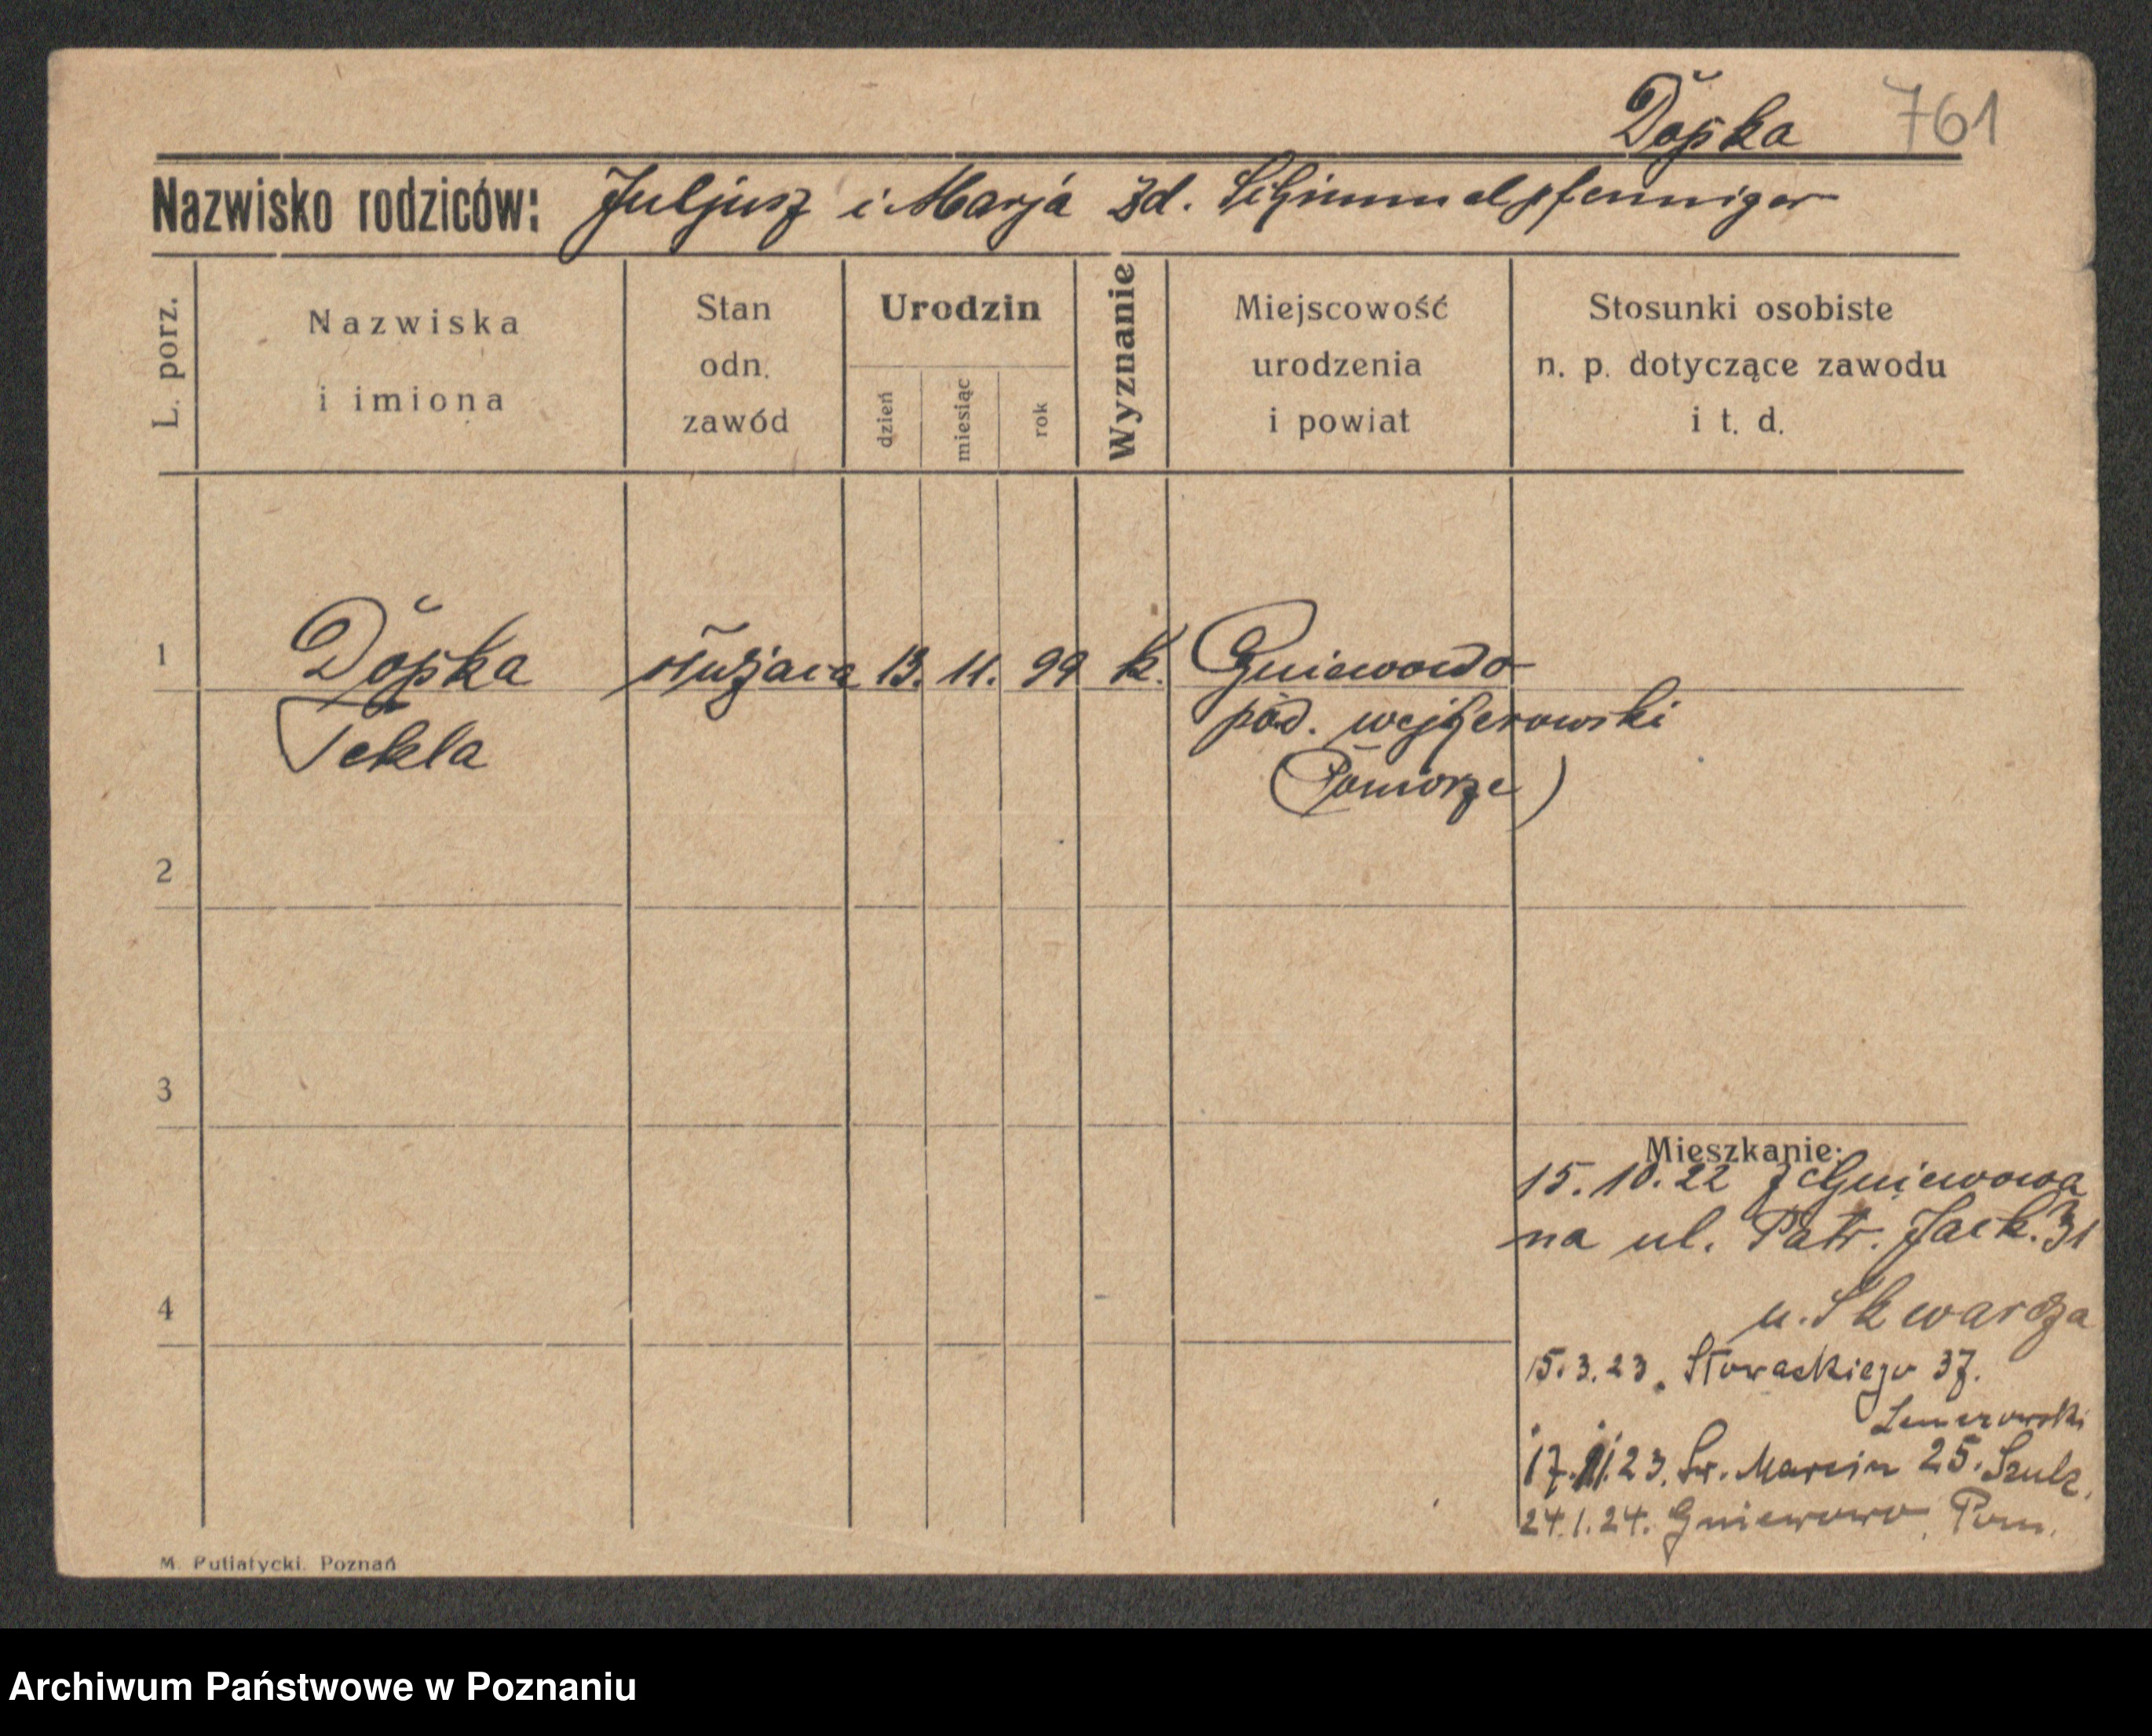 Dopka 761
Nazwisko rodziców: Juljusz i Marja zd. Schimmelpfenniger
L. porz.
Nazwiska
i imiona
Stan
odn.
zawód
Urodzin
dzień
miesiąc
rok
Wyznanie
Miejscowość
urodzenia
i powiat
Stosunki osobiste
n. p. dotyczące zawodu
i t. d.
1 Dopka służąca 13. 11. 99 k. Gniewowo
Tekla
pow. wejherowski
(Pomorze)
2
3
4
Mieszkanie:
15.10.22 z Gniewowa
na ul. Patr. Jack. 31
u. Skwarcza
15.3.23. Słowackiego 37.
17. 23. Św. Marcin 25. Szulz.
24.1.24. Gniewowo, Pom.
M. Putiatycki. Poznań
Archiwum Państwowe w Poznaniu